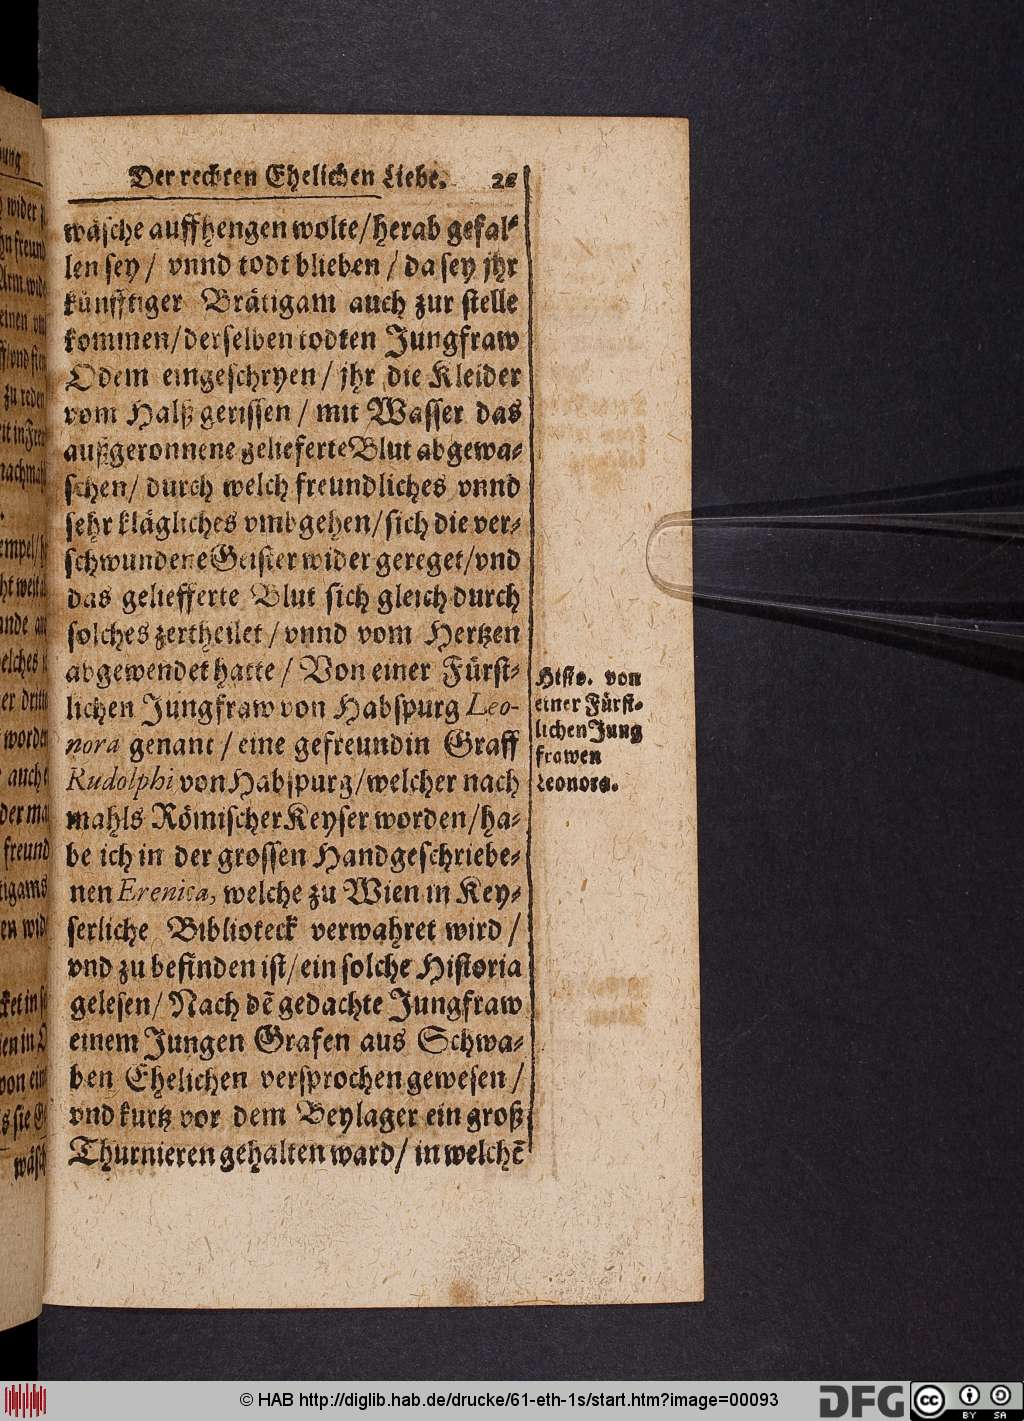 Der rechten Ehelichen Liebe.
wäsche auffhengen wolte/herab gefal⸗
len sey/ vnnd todt blieben/da sey jhr
künfftiger Brätigam auch zur stelle
kommen/derselben todten Jungfraw
Odem eingeschryen/ jhr die Kleider
vom Halß gerissen/ mit Wasser das
außgeronnene gelieferte Blut abgewa⸗
schen/ durch welch freundliches vnnd
sehr klägliches vmbgehen/sich die ver⸗
schwundene Geister wider gereget/vnd
das geliefferte Blut sich gleich durch
solches zertheilet/vnnd vom Hertzen
abgewendet hatte/ Von einer Fürst⸗
lichen Jungfraw von Habspurg Leo-
nora genant/eine gefreundin Graff
Rudolphi von Habspurg/welcher nach
mahls Römischer Keyser worden/ha⸗
be ich in der grossen Handgeschriebe⸗
nen Erenica, welche zu Wien in Key⸗
serliche Biblioteck verwahret wird/
vnd zu befinden ist/ein solche Historia
gelesen/ Nach dẽ gedachte Jungfraw
einem Jungen Grafen aus Schwa⸗
ben Ehelichen versprochen gewesen/
vnd kurtz vor dem Beylager ein groß
Thurnieren gehalten ward/ in welchẽ
Histo. von
einer Fürst⸗
lichen Jung
frawen
Leonora.
© HAB http://diglib.hab.de/drucke/61-eth-1s/start.htm?image=00093
DFG
cc
BY SA